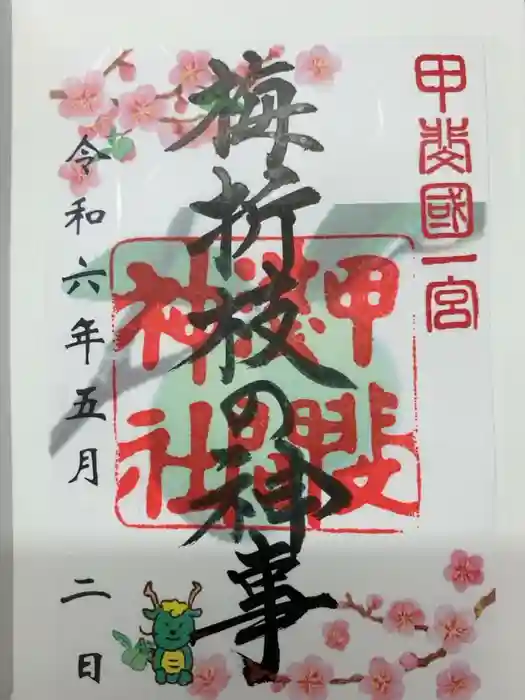 甲斐國一宮
梅折枝の神事
甲斐
神社
令和六年五月二日